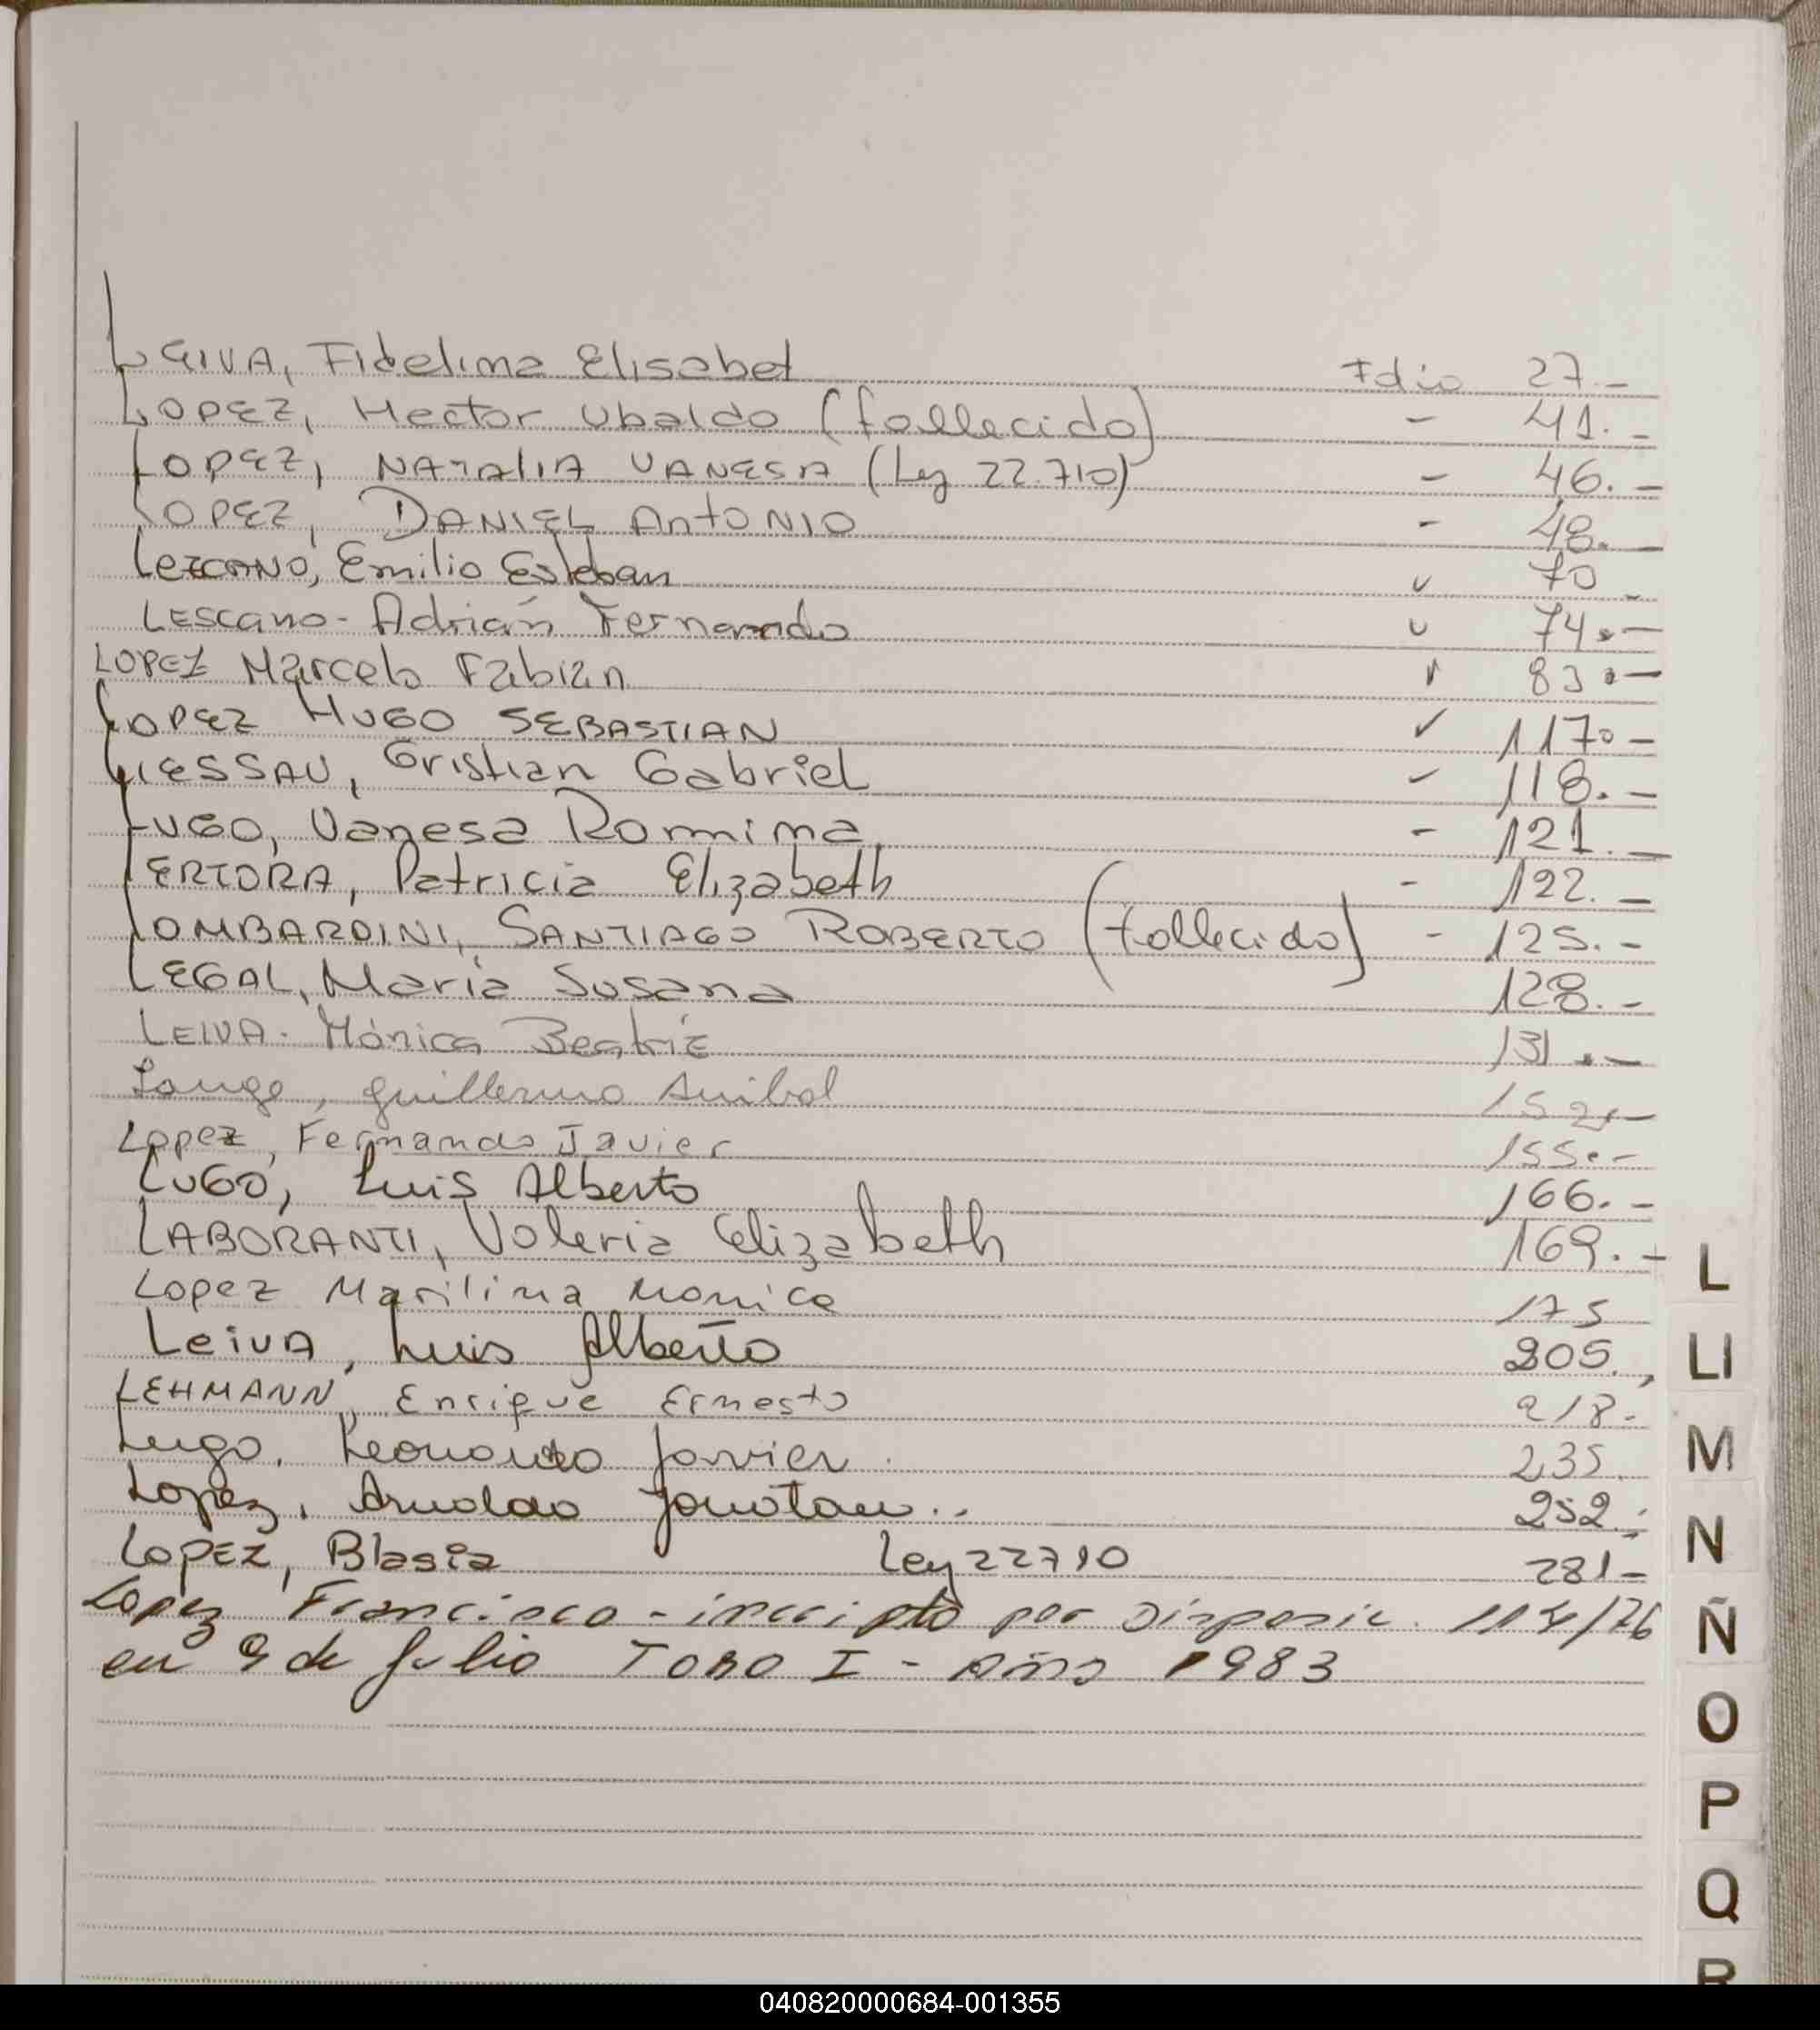 LEIVA, Fidelina Elisabet Fdio 27.-
LOPEZ, Hector Ubaldo (fallecido) - 41.-
LOPEZ, NATALIA VANESA (Ley 22.710) - 46.-
LOPEZ, DANIEL ANTONIO - 48.-
LEZCANO, Emilio Esteban 70 -
LESCANO - Adrián Fernando 74.-
LOPEZ Marcelo Fabian 83.-
LOPEZ HUGO SEBASTIAN ✓ 117.-
LIESSAU, Cristian Gabriel - 118.-
LUGO, Vanesa Romina - 121.-
LERTORA, Patricia Elizabeth - 122.-
LOMBARDINI, SANTIAGO ROBERTO (fallecido) - 125.-
LEGAL, Maria Susana 128.-
LEIVA - Mónica Beatriz 131.-
Lange, Guillermo Anibal 152.-
Lopez, Fernando Javier 155.-
LUGO, Luis Alberto 166.-
LABORANTI, Valeria Elizabeth 169.-
Lopez Marilina Monica 175
LEIVA, Luis Alberto 205.,
LEHMANN, Enrique Ernesto 218.-
Lugo, Leonardo Javier. 235.
Lopez, Arnoldo Jonatan.. 252.-
LOPEZ, Blasia Ley 22710 281-
Lopez Francisco - inscripto por Disposic. 114/76
en 9 de Julio Tomo I - Año 1983
L
LI
M
N
Ñ
O
P
Q
R
040820000684-001355